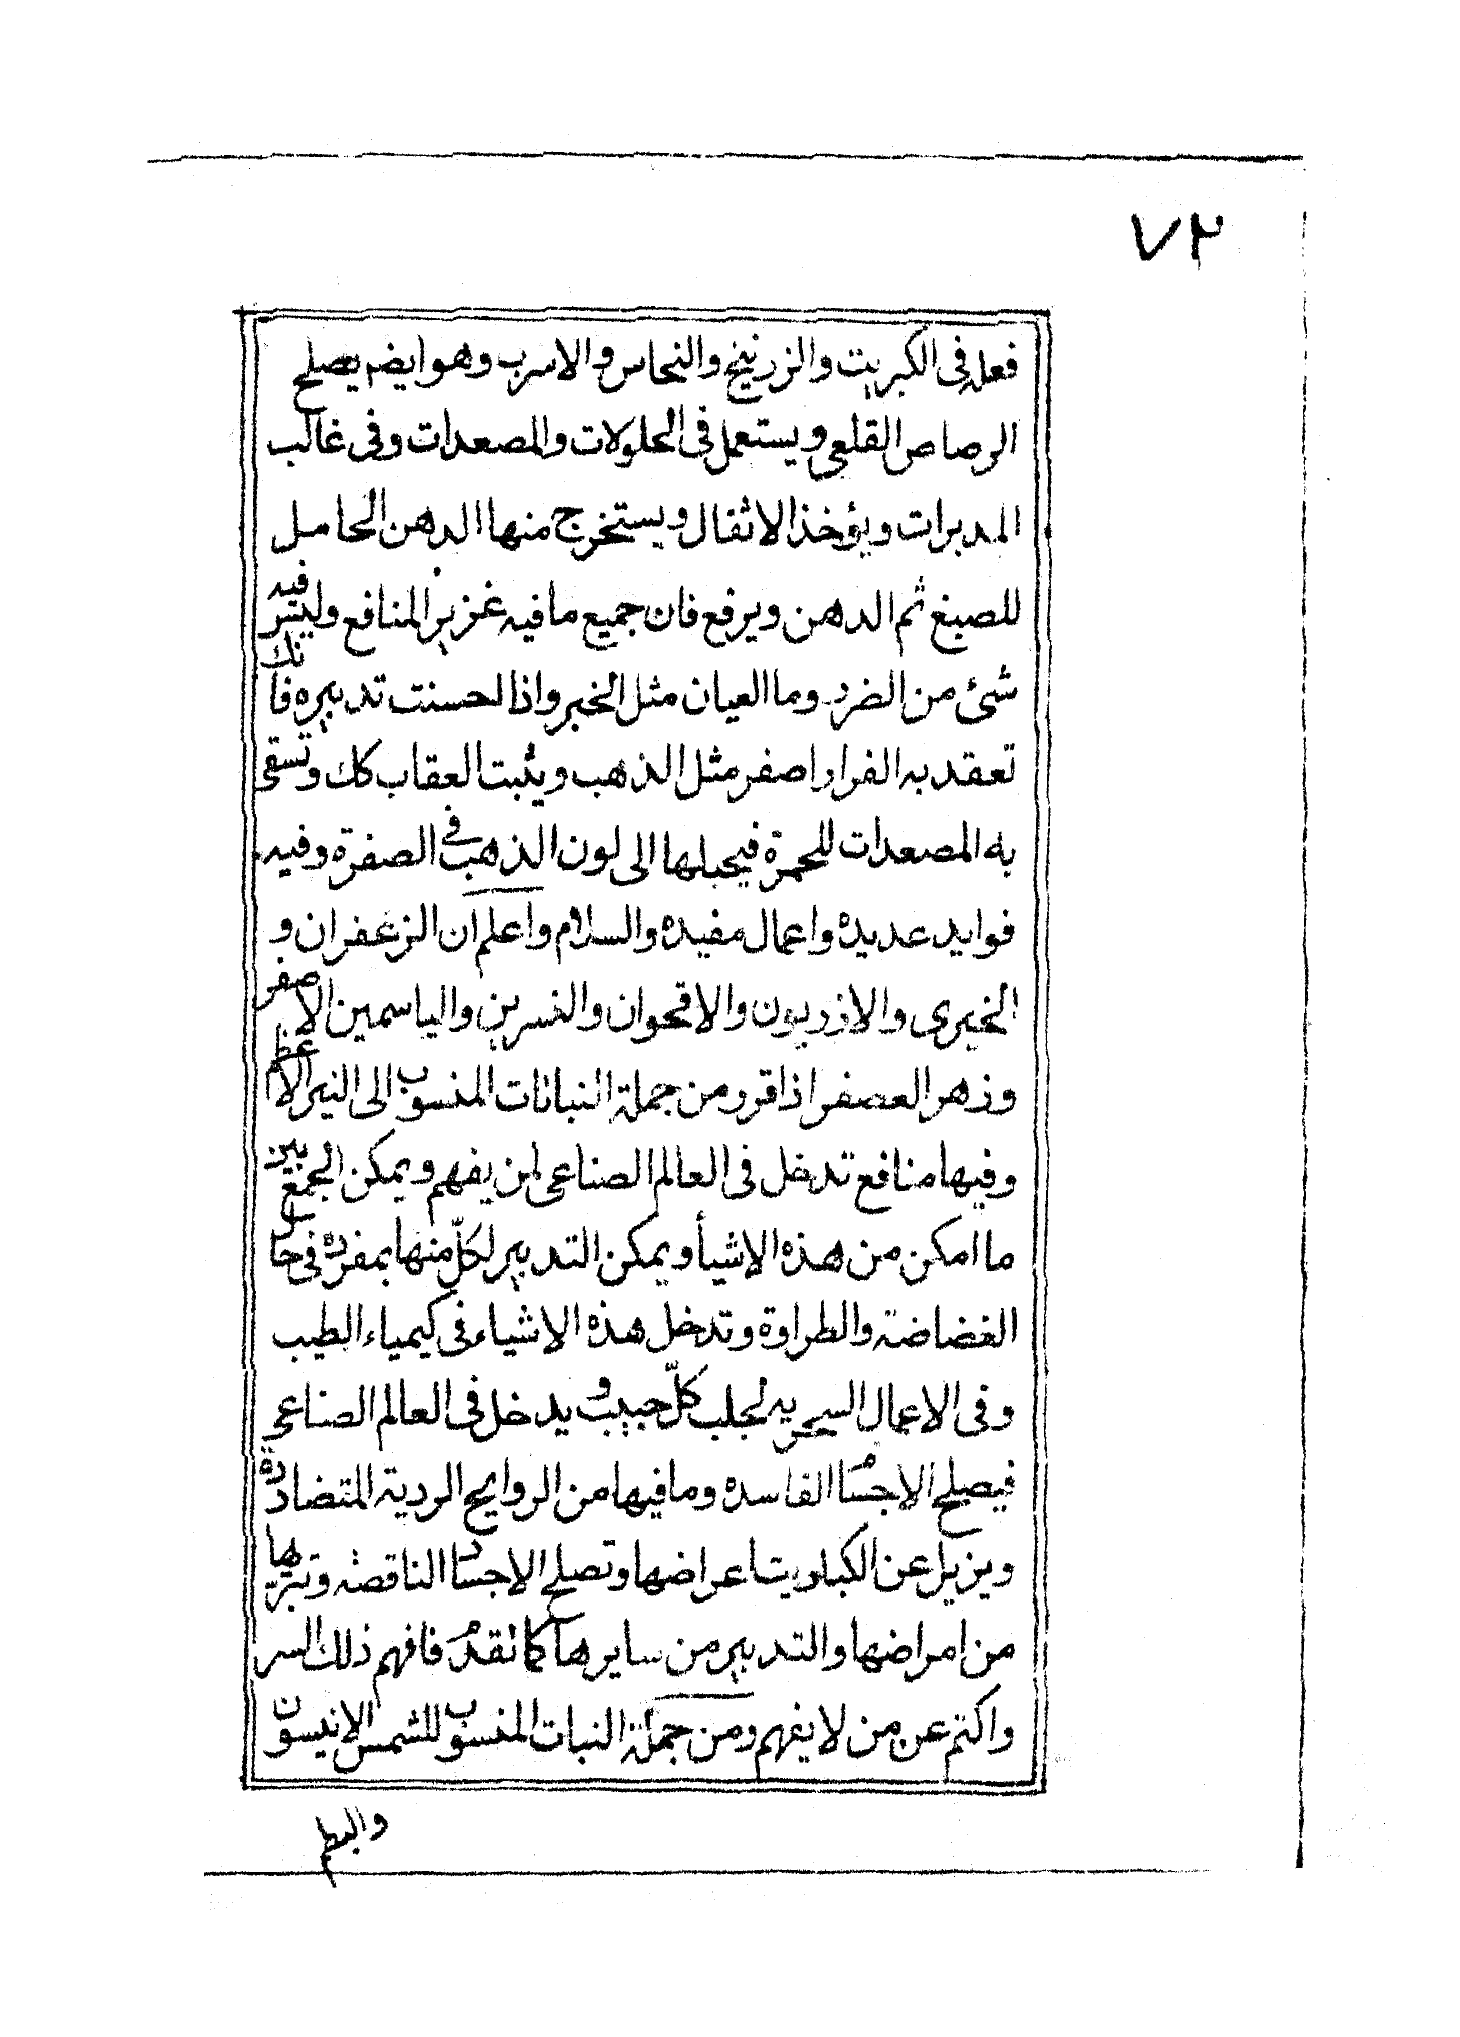 ٧٢
فعله فى الكبريت والزرنيخ والنحاس والاسرب وهو ايضه يصلح
الرصاص القلعى ويستعمل فى المحلولات والمصعدات وفى غالب
المدبرات ويؤخذ الاثقال ويستخرج منها الدهن الحامل
للصبغ ثم الدهن ويرفع فان جميع ما فيه غزيز المنافع وليس فيه
شئ من الضرر وما العيان مثل الخبر واذا احسنت تدبيره فانك
تعقد به الفرار اصفر مثل الذهب ويثبت العقاب كك وتسقى
به المصعدات للحمرة فيحيلها الى لون الذهب فى الصفرة وفيه
فوايد عديده واعمال مفيده والسلام واعلم ان الزعفران و
الخيرى والاذريون والاقحوان والنسرين والياسمين الاصفر
وزهر العصفر اذا قرر من جملة النباتات المنسوب الى النير الاعظم
وفيها منافع تدخل فى العالم الصناعى لمن يفهم ويمكن الجمع بين
ما امكن من هذه الاشيأ ويمكن التدبير لكلّ منها بمفرده فى حال
الغضاضة والطراوة وتدخل هذه الاشياء فى كيمياء الطيب
وفى الاعمال السحريه لجلب كلّ حبيب ويدخل فى العالم الصناعى
فيصلح الاجسام الفاسده وما فيها من الروايح الردية المتضادده
ويزيل عن الكباريت اعراضها وتصلح الاجساد الناقصة وتبرّيها
من امراضها والتدبير من سايرها كما تقدم فافهم ذلك السر
واكتم عن من لا يفهم ومن جملة النبات المنسوب للشمس الانيسون